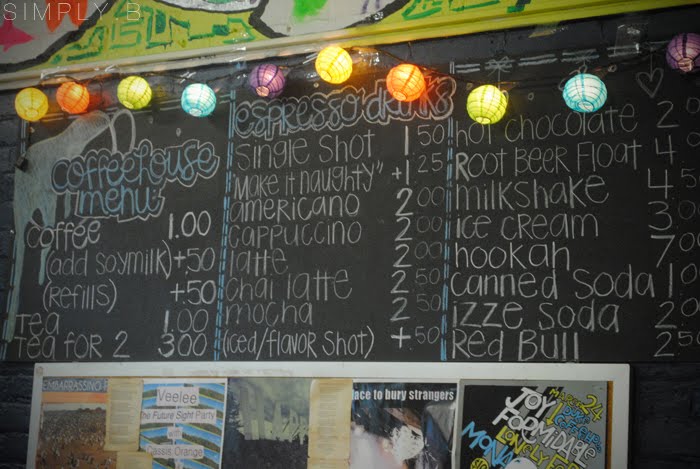 SIMPLY B
coffeehouse
menu
COFFEE 1.00
(add soymilk) +.50
(refills) +.50
Tea 1.00
Tea for 2 3.00
espresso drinks
single shot 1 50
"make it naughty" +1 25
americano 2 00
cappuccino 2 00
latte 2 00
chai latte 2 50
mocha 2 50
(iced/flavor shot) + 50
hot chocolate 2
Root Beer Float 4
milkshake 4 50
ice cream 3 00
hookah 7 00
canned soda 1
izze soda 2
Red Bull 2 50
EMBARRASSING
Veelee
The Future Sight Party
with
Cassis Orange
place to bury strangers
MARCH 24
JOY
FORMIDABLE
LONELY
MONA